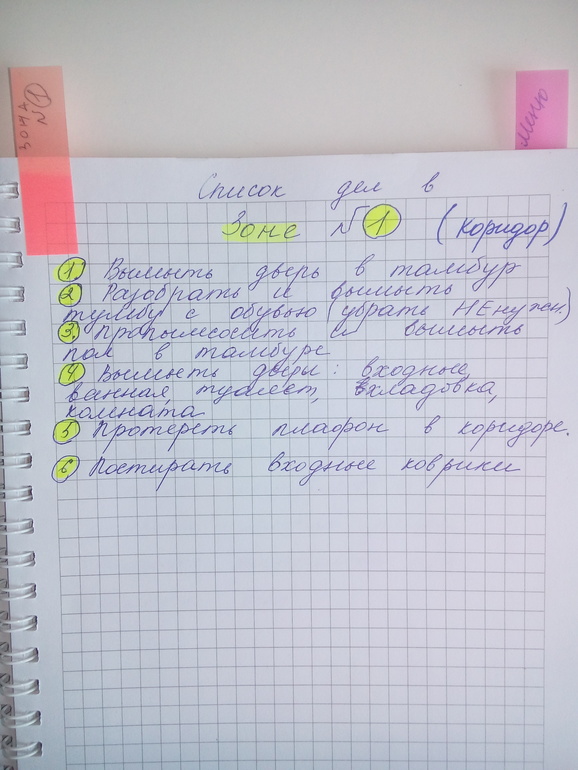 ЗОНА
N①
Меню
Список дел в
Зоне №1 (коридор)
1 Вымыть дверь в тамбур
2 Разобрать и вымыть
тумбу с обувью (убрать НЕнужн.)
3. Пропылесосить и вымыть
пол в тамбуре
4 Вымыть двери: входные,
ванная, туалет, кладовка,
комната
5 Протереть плафон в коридоре.
6 Постирать входные коврики